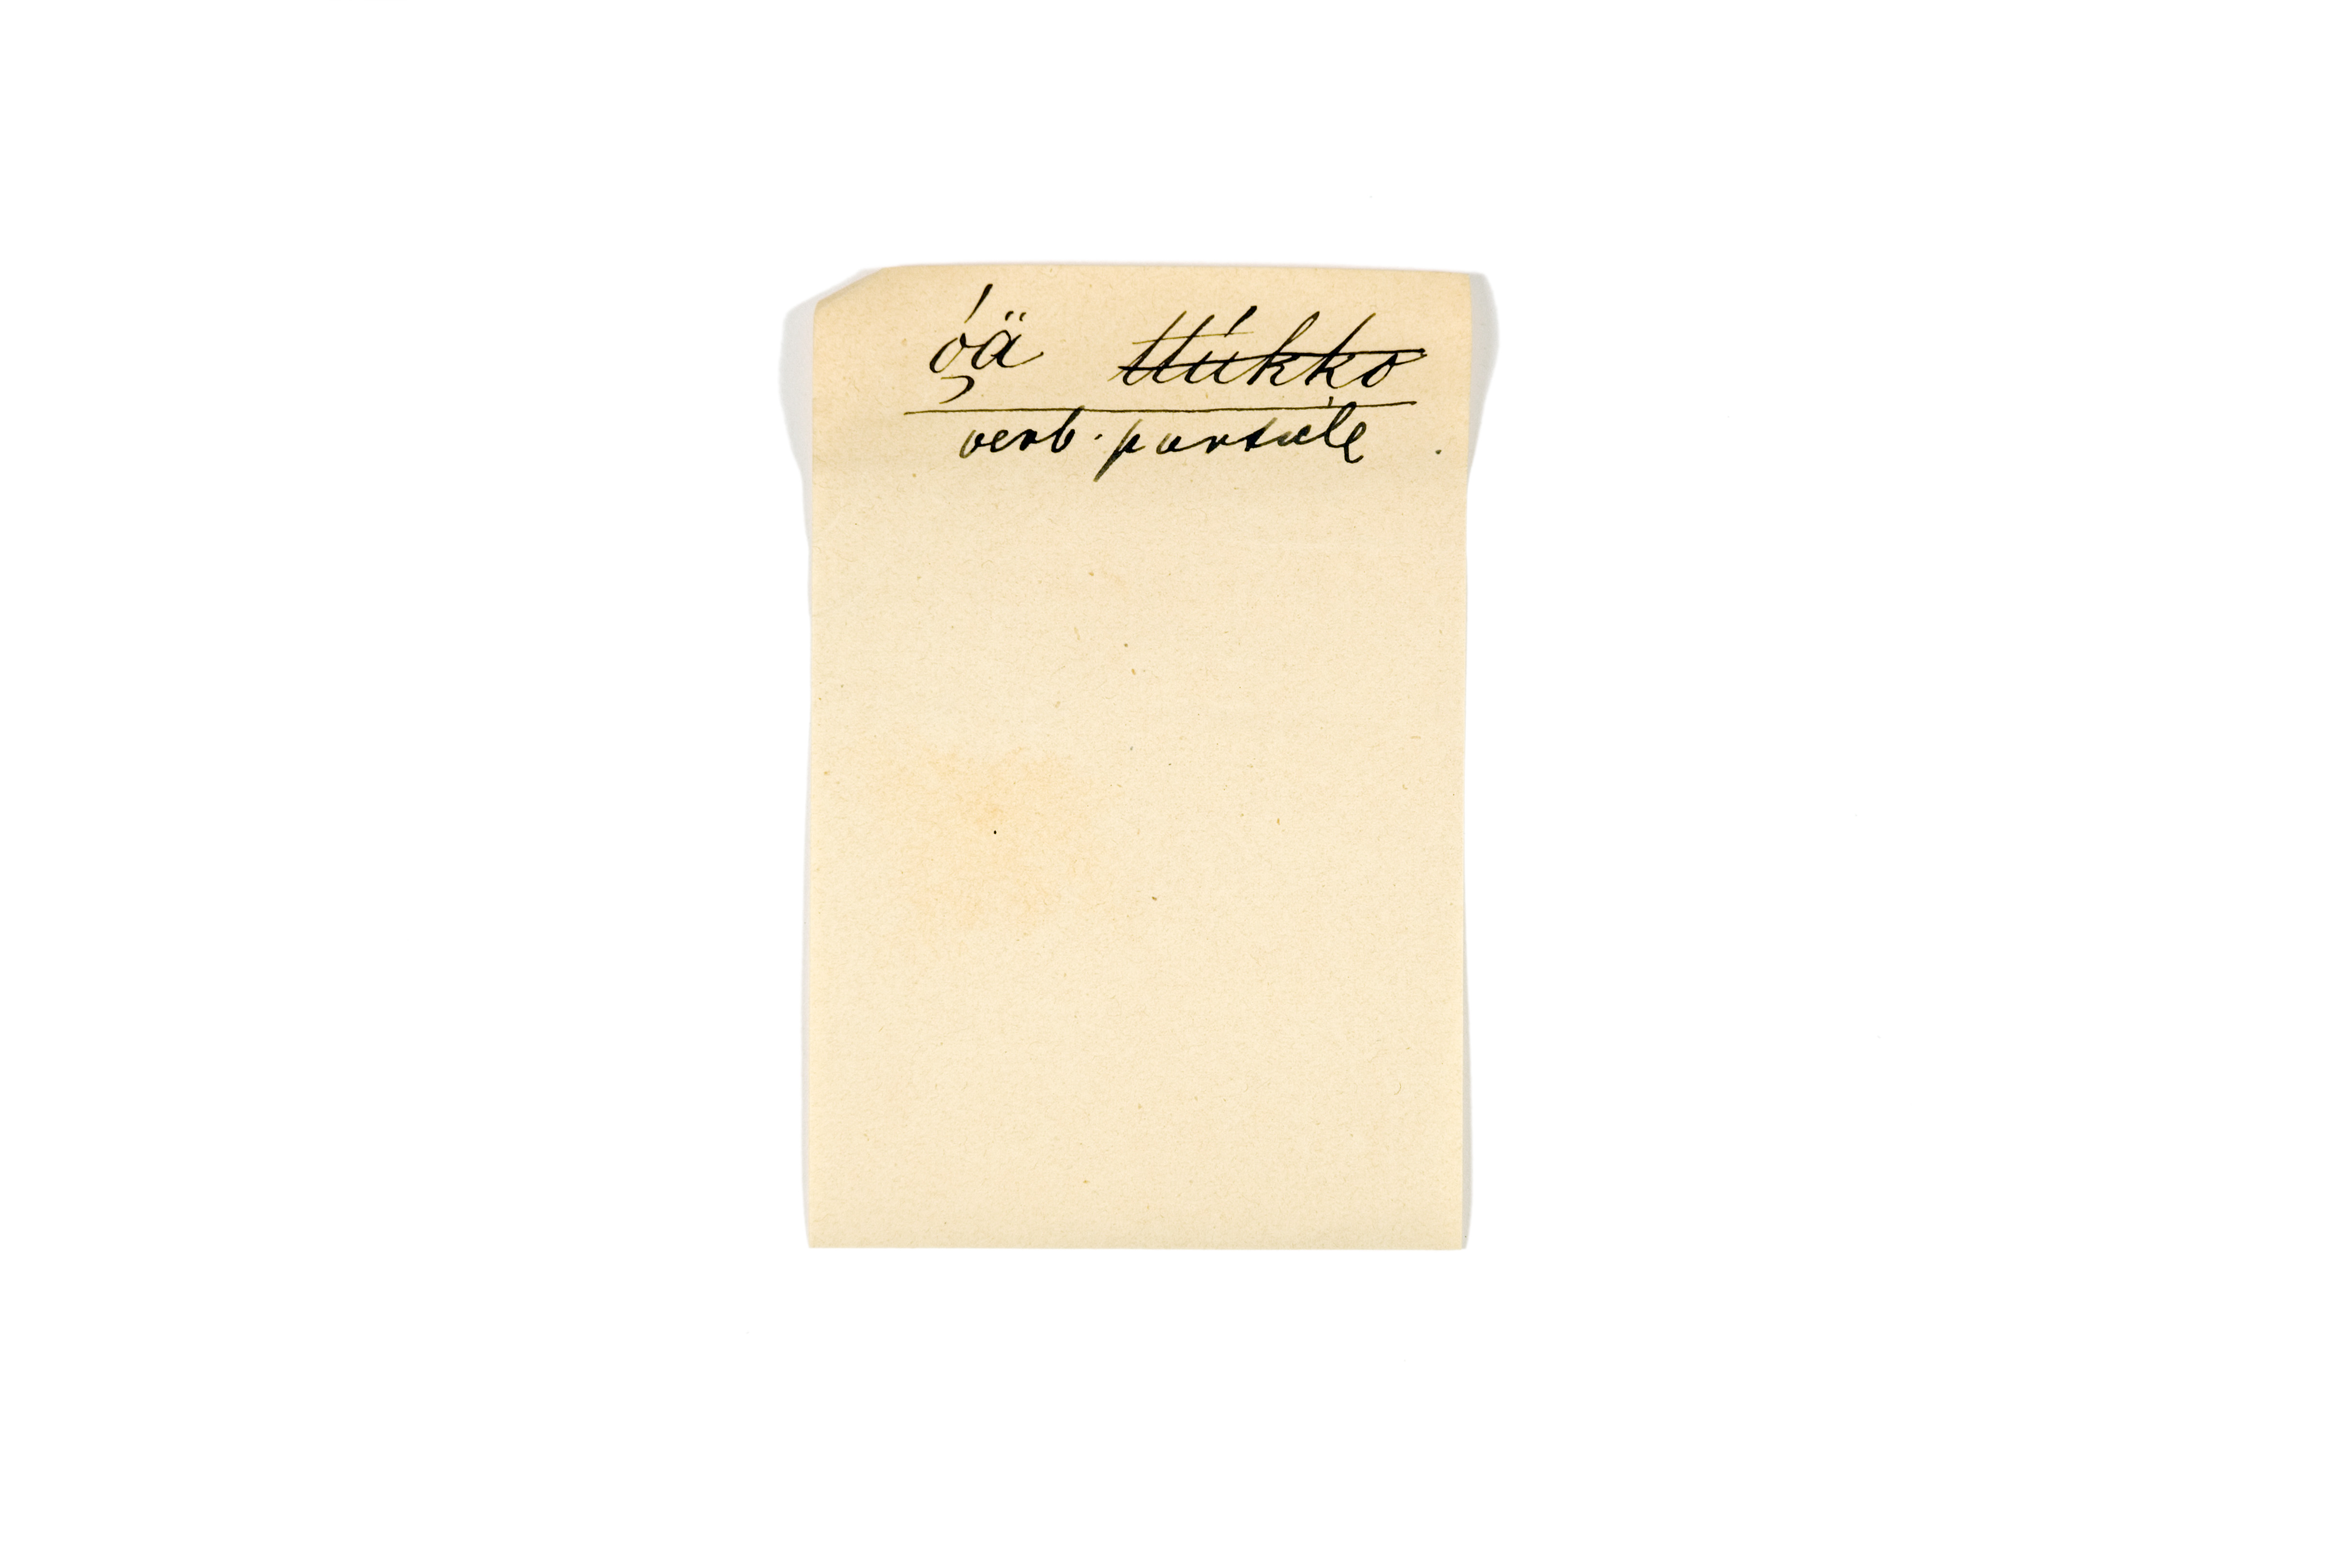 óä ttúkko
verb. particle